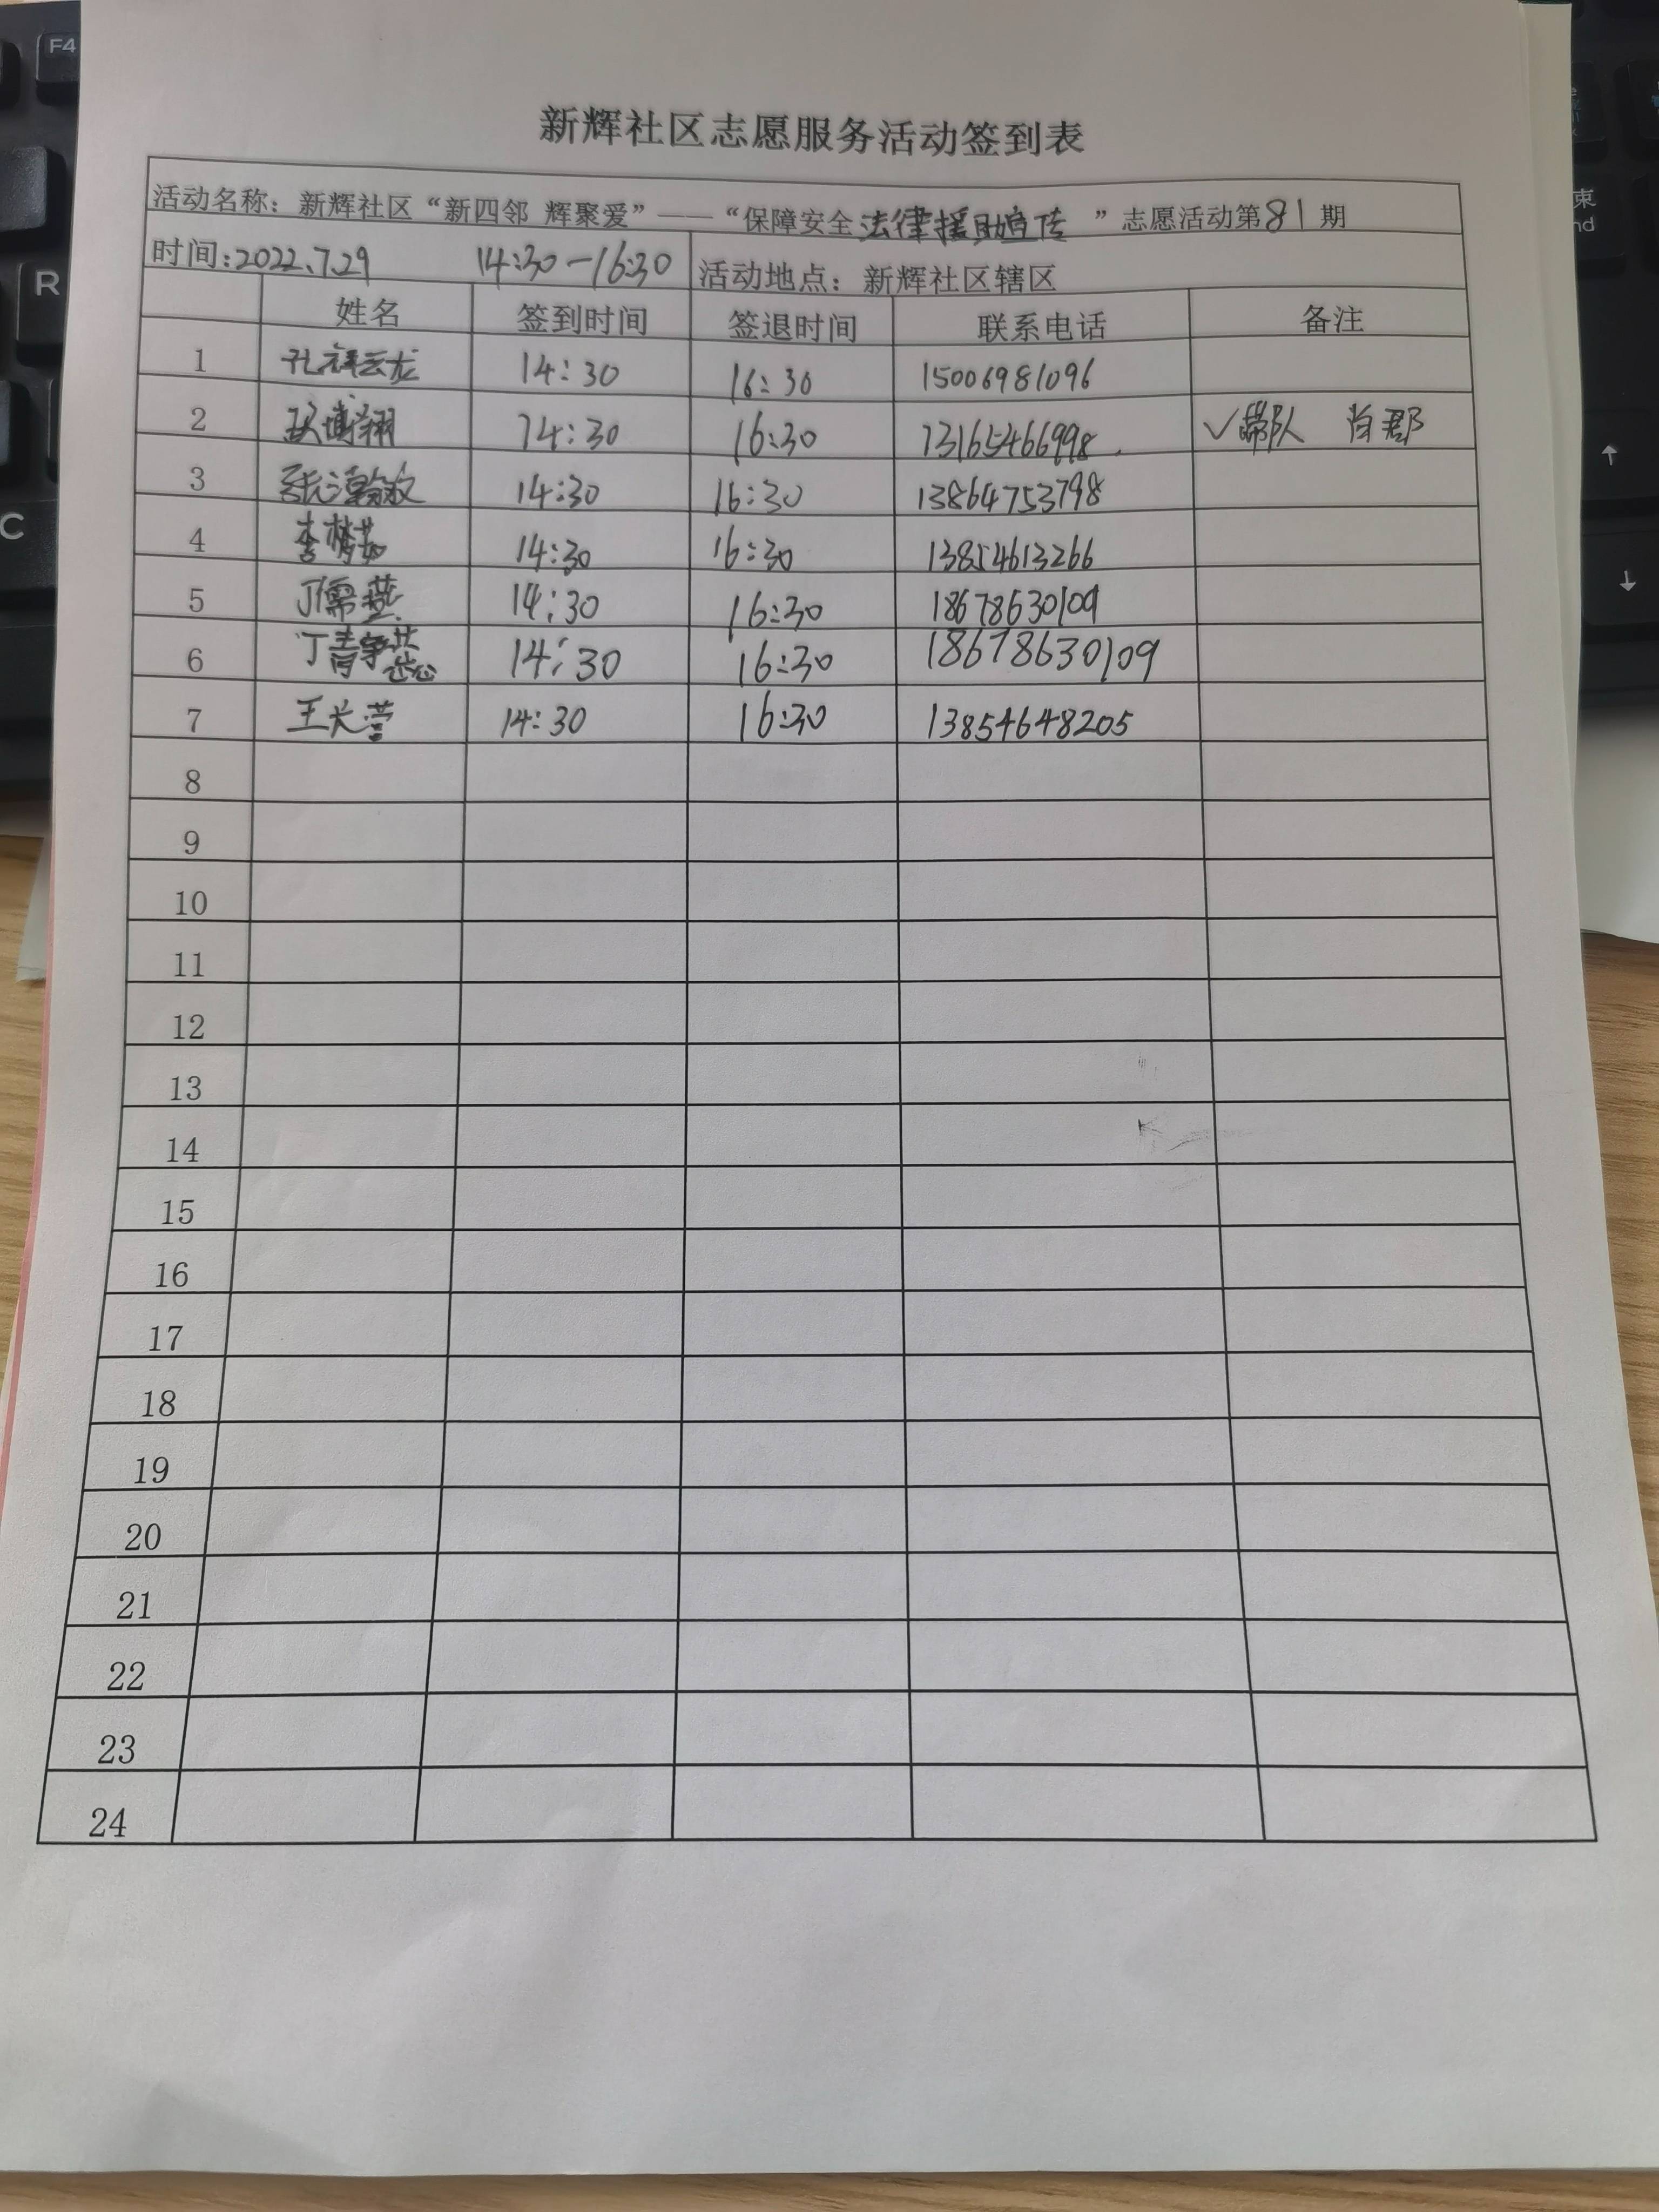 新辉社区志愿服务活动签到表
活动名称：新辉社区“新四邻 辉聚爱”——“保障安全 法律援助宣传 ”志愿活动第81期
时间：2022.7.29 14:30—16:30 活动地点：新辉社区辖区
姓名 签到时间 签退时间 联系电话 备注
1 孔祥云龙 14:30 16:30 15006981096
2 博翔 14:30 16:30 13165466998 ✓带队 肖郡
3 张瀚敏 14:30 16:30 13864753798
4 李梦茹 14:30 16:30 13854613266
5 丁儒燕 14:30 16:30 18678630109
6 丁 14:30 16:30 18678630109
7 王长莹 14:30 16:30 13854648205
8
9
10
11
12
13
14
15
16
17
18
19
20
21
22
23
24
F4
R
C
束
nd
↑
↓